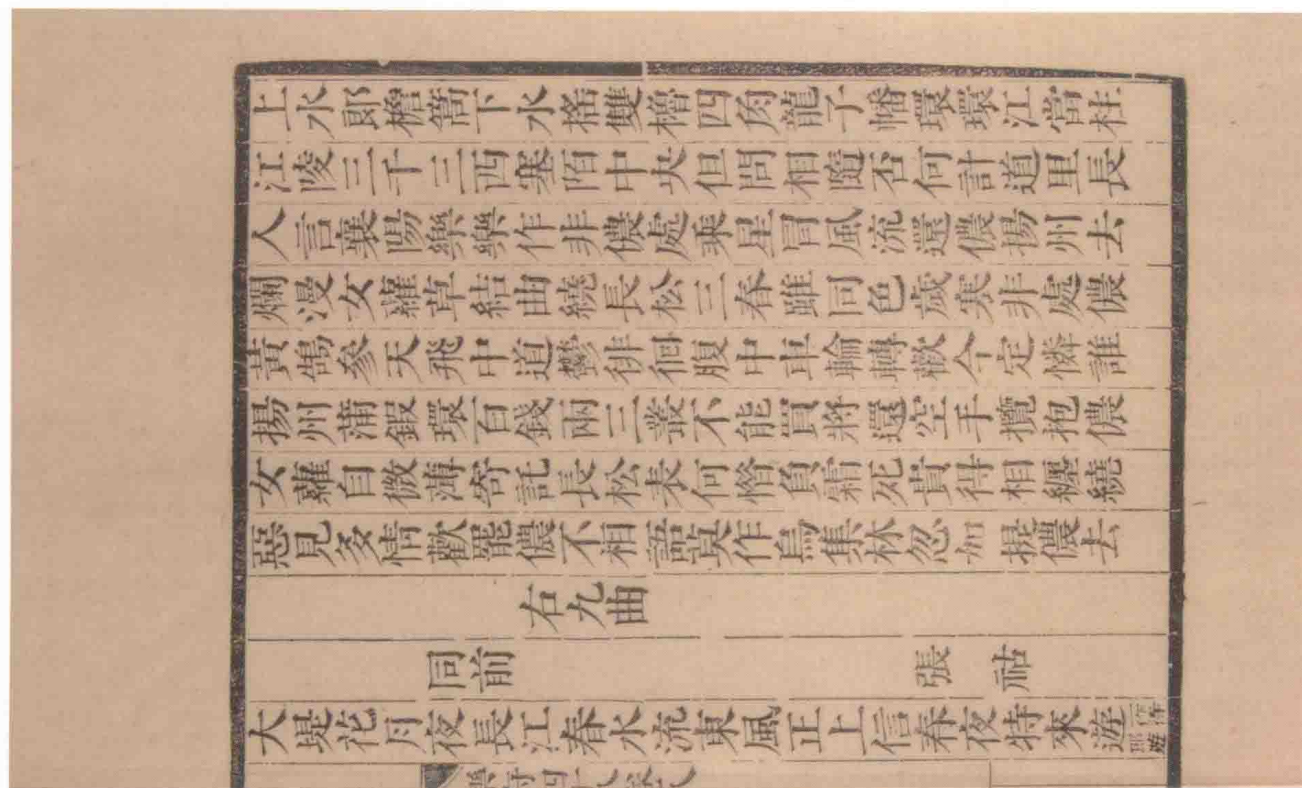 上水郎檐篙下水搖雙櫓四角龍子幡環環江當柱
江陵三千三西塞陌中央但問相隨否何計道里長
人言襄陽樂樂作非儂處乘星冒風流還儂揚州去
爛漫女蘿草結曲繞長松三春雖同色歲寒非處儂
黃鵠參天飛中道鬱徘徊腹中車輪轉歡今定憐誰
揚州蒲鍛環百錢兩三叢不能買將還空手攬抱儂
女蘿自微薄寄託長松表何惜負霜死貴得相纏繞
惡見多情歡罷儂不相語莫作烏集林忽如提儂去
右九曲
同前 張祜
大堤花月夜長江春水流東風正上信春夜特來遊